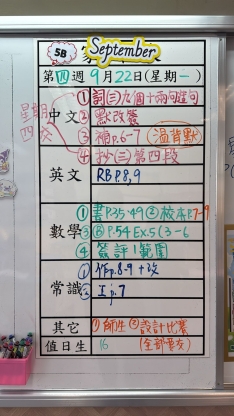 5B
September
第四週 9月22日(星期一)
星期四交
中文
①詞(三)九個十兩句造句
②默改簽
③補p.6-7 (溫背默)
④抄(三)第四段
英文
RB P.8,9
數學
①書P.35-49 ②校本P.7-9
③ P.54 EX.5(3-6
④簽評1範圍
常識
①作p.8-9+改
②工p.7
其它
①師生②設計比賽
(全部要交)
值日生
16